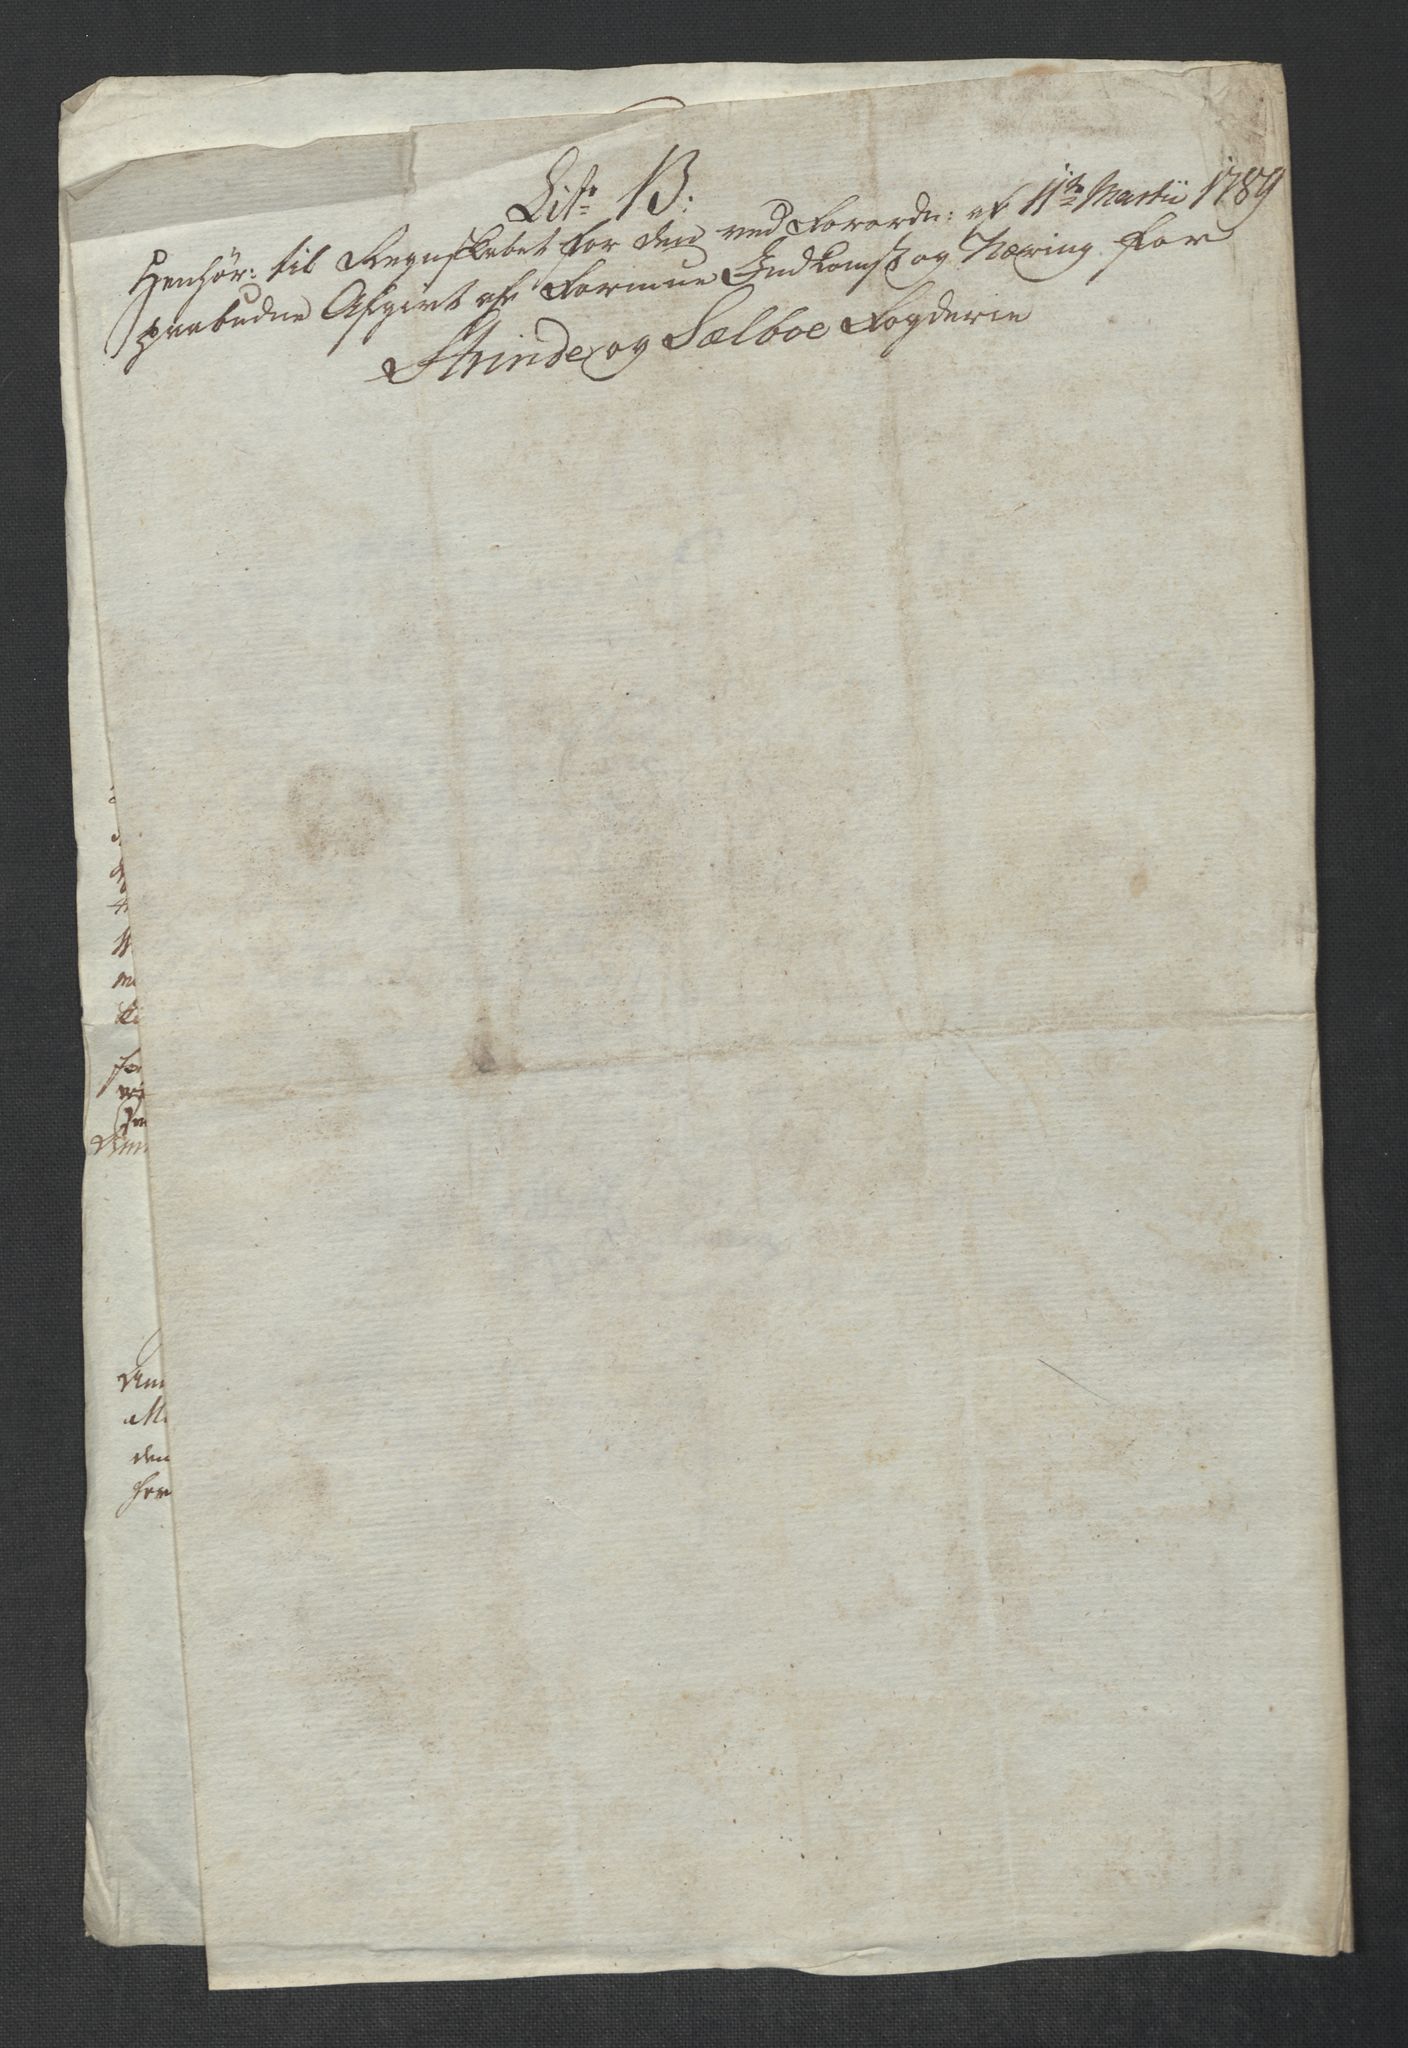 Lit: B:
Henhör: til Regnskabet for den ved Forordn: af 11te Martii 1789
paabudne Afgivt af Formue Indkomst og Næring for
Strinde og Sælboe Fogderie